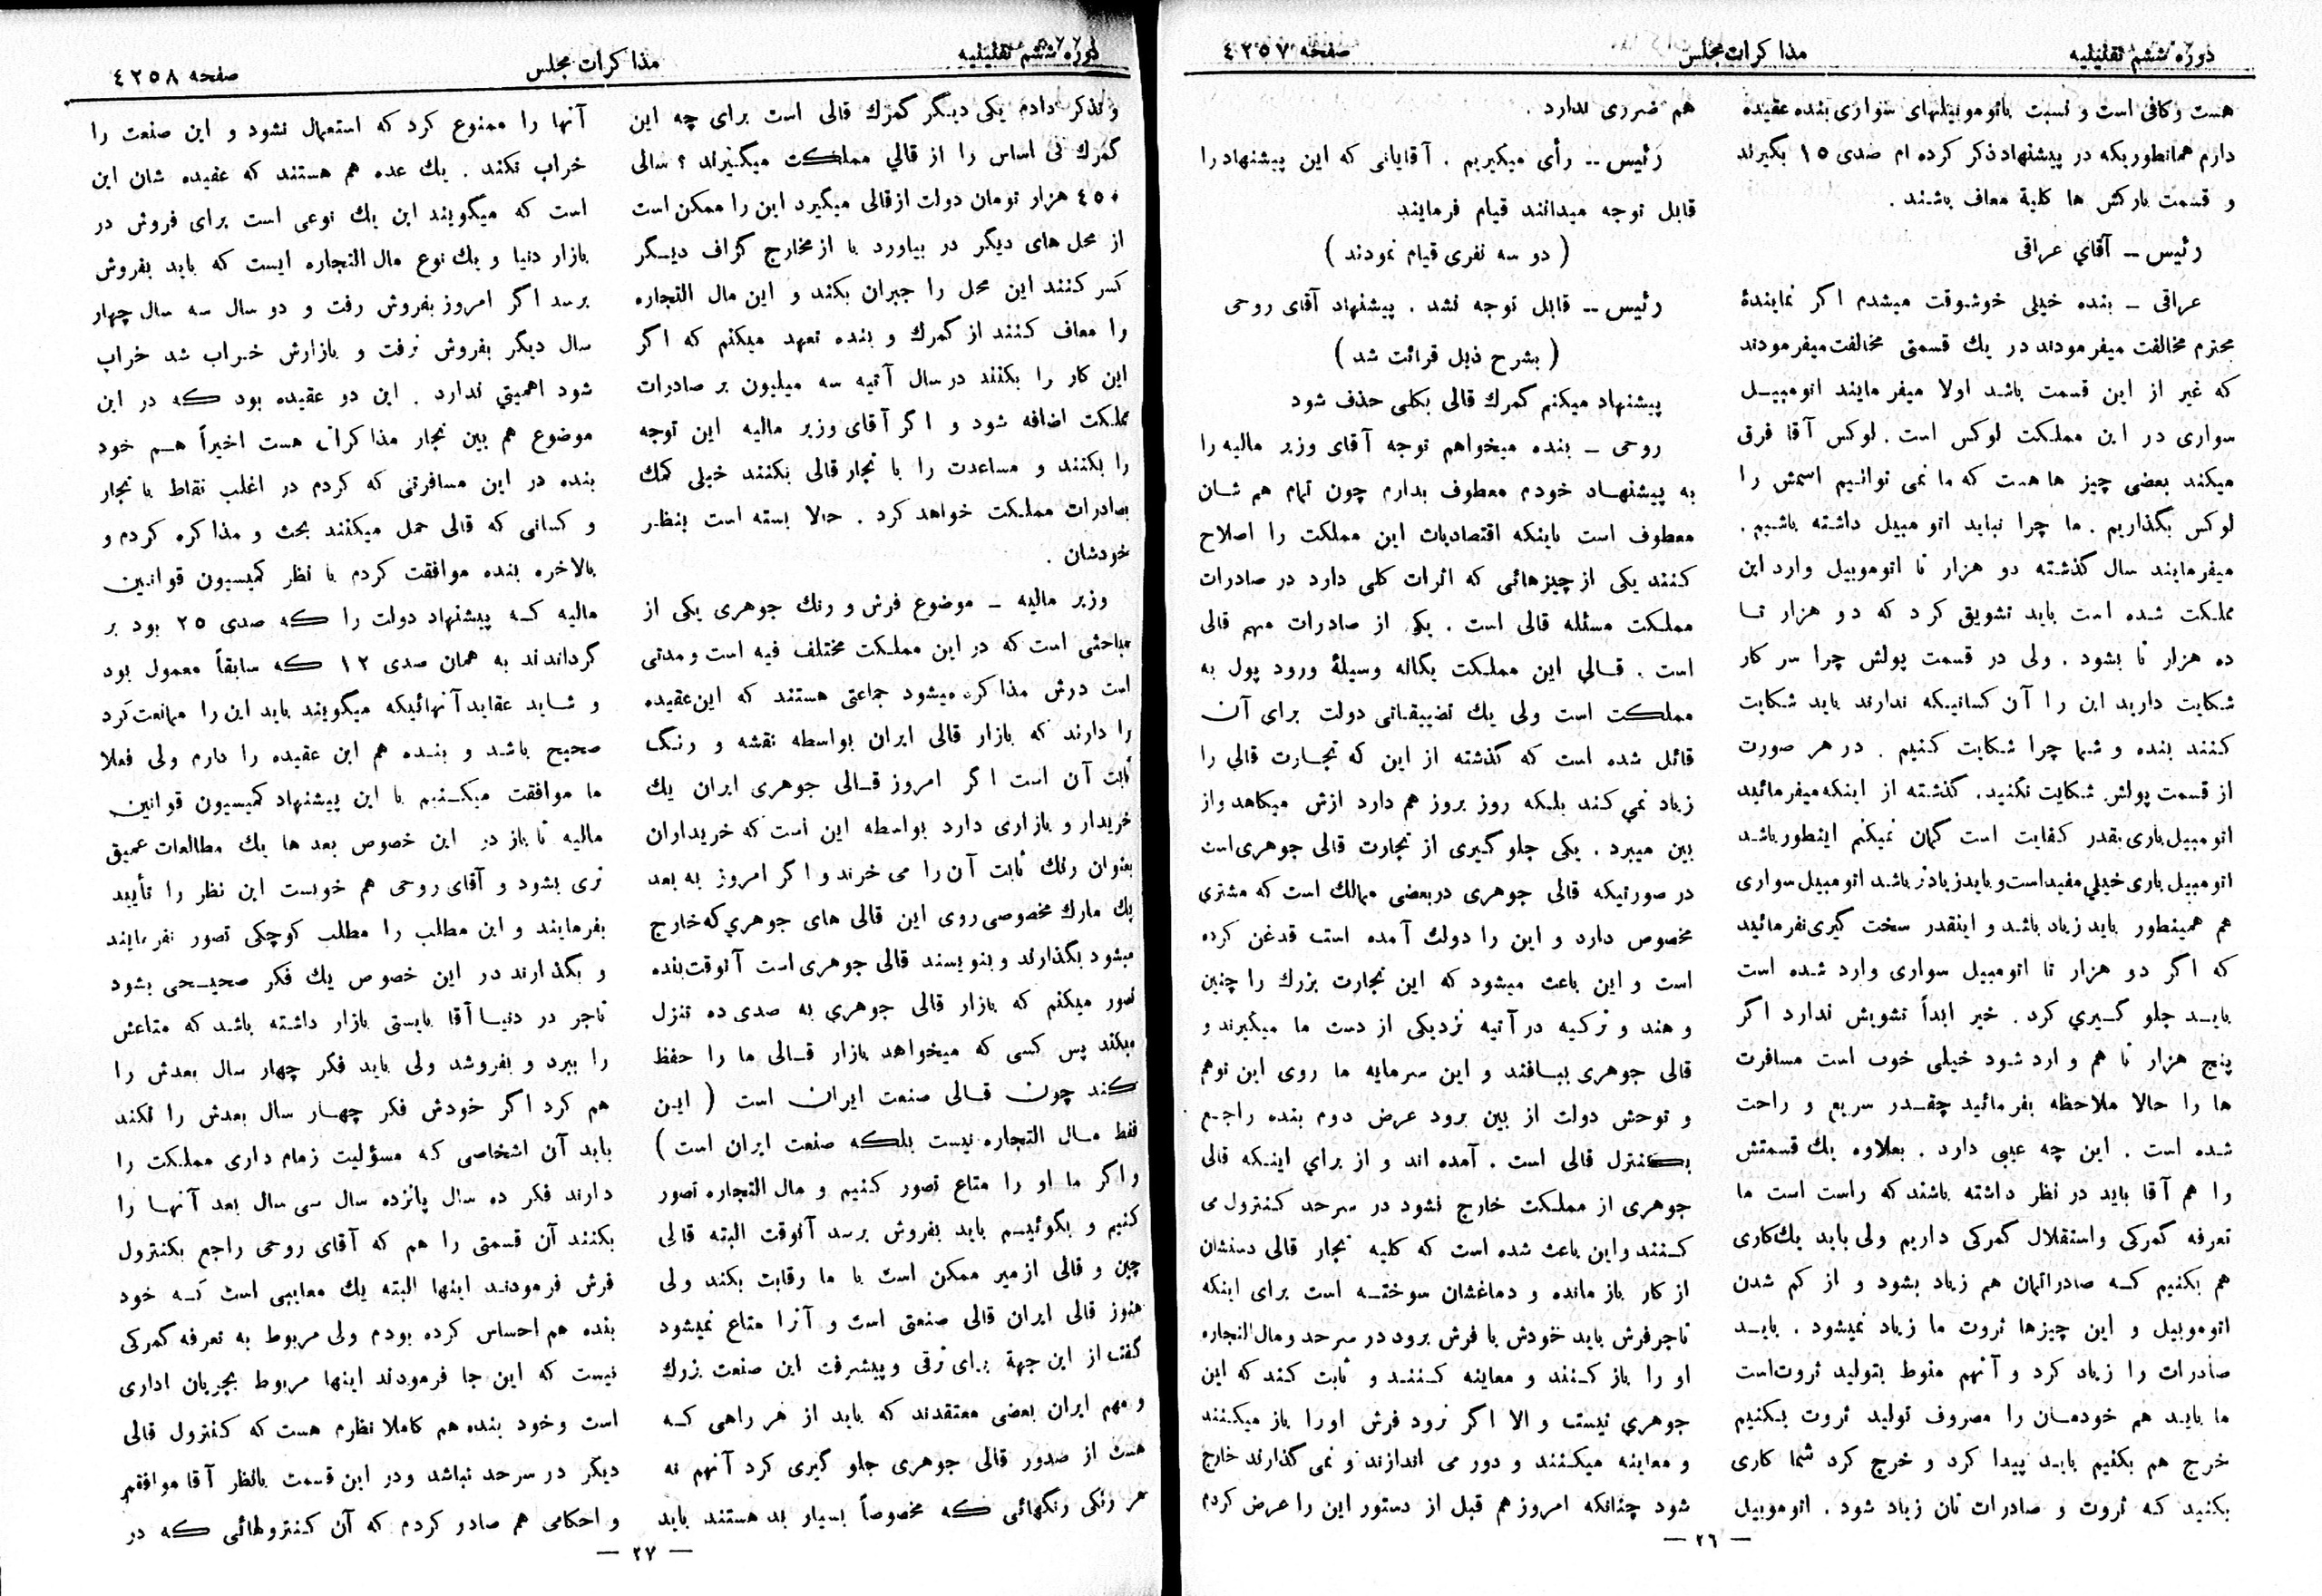 دوره ششم تقلیلیه
مذاکرات مجلس
صفحه ٤٢٥٧
هست و کافی است و نسبت باتوموبیلهای سواری بنده عقیده
دارم همانطوریکه در پیشنهاد ذکر کرده ام صدی ١٥ بگیرند
و قسمت بارکش ها کلیة معاف باشند .
رئیس ــ آقاي عراقی
عراقی ــ بنده خیلی خوشوقت میشدم اگر نمایندهٔ
محترم مخالفت میفرمودند در یك قسمتی مخالفت میفرمودند
که غیر از این قسمت باشد اولا میفرمایند اتومبیـل
سواری در این مملکت لوکس است . لوکس آقا فرق
میکند بعضی چیز ها هست که ما نمی توانـیم اسمش را
لوکس بگذاریم . ما چرا نباید اتو مبیل داشته باشیم .
میفرمایند سال گذشته دو هزار تا اتوموبیل وارد این
مملکت شده است باید تشویق کرد که دو هزار تـا
ده هزار تا بشود . ولی در قسمت پولش چرا سر کار
شکایت دارید این را آن کسانیـکه ندارند باید شکایت
کنند بنده و شما چرا شکایت کنیم . در هر صورت
از قسمت پولش شکایت نکنید . گذشته از اینکه میفرمائید
اتومبیل باری بقدر کفایت است گمان نمیکنم اینطور باشـد
اتومبیل باری خیلي مفید است و باید زیادتر باشد اتومبیل سواری
هم همینطور باید زیاد باشد و اینقدر سخت گیری نفرمائید
که اگر دو هزار تا اتومبیل سواری وارد شده است
بایـد جلو گـیري کرد . خیر ابداً تشویش ندارد اگر
پنج هزار تا هم وارد شود خیلی خوب است مسافرت
ها را حالا ملاحظه بفرمائید چقـدر سریع و راحت
شده است . این چه عیبی دارد . بعلاوه یك قسمتش
را هم آقا باید در نظر داشته باشند که راست است ما
تعرفه گمرکی و استقلال گمرکی داریم ولی باید یك کاری
هم بکنیم کـه صادراتمان هم زیاد بشود و از کم شدن
اتوموبیل و این چیزها ثروت ما زیاد نمیشود . بایـد
صادرات را زیاد کرد و آنهم منوط بتولید ثروت است
ما بایـد هم خودمـان را مصروف تولید ثروت بـکنیم
خرج هم بکنیم بایـد پیدا کرد و خرج کرد شما کاری
بکنید کـه ثروت و صادرات تان زیاد شود . اتوموبیل
هم ضرری ندارد .
رئیس ــ رأی میگیریم . آقایانی که این پیشنهاد را
قابل توجه میدانند قیام فرمایند
( دو سه نفری قیام نمودند )
رئیس ــ قابل توجه نشد . پیشنهاد آقای روحی
( بشرح ذیل قرائت شد )
پیشنهاد میکنم گمرك قالی بکلی حذف شود
روحی ــ بنده میخواهم توجه آقای وزیر مالیه را
به پیشنهـاد خودم معطوف بدارم چون تمام هم شـان
معطوف است باینکه اقتصادیات این مملکت را اصلاح
کـنند یکی از چیزهائی که اثرات کلی دارد در صادرات
مملـکت مسئله قالی است . یکی از صادرات مهم قالی
است . قـالي این مملـکت یگانه وسیلهٔ ورود پول به
مملـکت است ولی یك تضییقـاتی دولت برای آن
قائل شده است که گذشته از این که تجـارت قالي را
زیاد نمي کـند بلـکه روز بروز هم دارد ازش میکاهد و از
بین میبرد . یکی جلوگیری از تجارت قالی جوهری است
در صورتیکه قالی جوهری در بعضی ممالك است که مشتری
مخصوص دارد و این را دولت آمده است قدغن کرده
است و این باعث میشود که این تجارت بزرك را چنین
و هند و ترکیه در آتیه نزدیکی از دست ما میگیرند و
قالی جوهری ببـافند و این سرمایه ما روی این توهم
و توحش دولت از بین برود عرض دوم بنده راجـع
بـکنترل قالی است . آمده اند و از براي اینـکه قالی
جوهری از مملـکت خارج نشود در سرحد کـنترول می
کـنند و این باعث شده است که کلیه تجار قالی دستشان
از کار باز مانده و دماغشان سوختـه است برای اینکه
تاجر فرش باید خودش با فرش برود در سرحد و مال التجاره
او را باز کـنند و معاینه کـنند و ثابت کـند که این
جوهري نیست و الا اگر نرود فرش او را باز میکـنند
و معاینه میکـنند و دور می اندازند و نمی گذارند خارج
شود چنانکه امروز هم قبل از دستور این را عرض کردم
— ٢٦ —
دوره ششم تقلیلیه
مذاکرات مجلس
صفحه ٤٢٥٨
و تذکر دادم یکی دیـگر گمرك قالی است برای چه این
گمرك بی اساس را از قالي مملـکت میگـیرند ؟ سالی
٤٥٠ هزار تومان دولت از قالی میگیرد این را ممکن است
از محل های دیگر در بیاورد یا از مخارج گزاف دیـگر
کسر کنند این محل را جبران بکند و این مال التجاره
را معاف کـنند از گمرك و بنده تعهد میکنم که اگر
این کار را بکنند در سال آتیه سه میلیون بر صادرات
مملـکت اضافه شود و اگر آقای وزیر مالیه این توجه
را بکنند و مساعدت را با تجار قالی بکنند خیلی کمك
بصادرات مملـکت خواهد کرد . حالا بسته است بنظر
خودشان .
وزیر مالیه ــ موضوع فرش و رنك جوهری یکی از
مباحثی است که در این مملـکت مختلف فیه است و مدتی
است درش مذاکره میشود جماعتی هستند که این عقیده
را دارند که بازار قالی ایران بواسطه نقشه و رنـگ
ثابت آن است اگر امروز قـالی جوهری ایران یك
خریدار و بازاری دارد بواسطه این است که خریداران
بعنوان رنك ثابت آن را می خرند و اگر امروز به بعد
یك مارك مخصوصی روی این قالی های جوهري که خارج
میشود بگذارند و بنویسند قالی جوهری است آنوقت بنده
تصور میکنم که بازار قالی جوهري به صدی ده تنزل
میکند پس کسی که میخواهد بازار قـالی ما را حفظ
کـند چون قـالی صنعت ایران است ( این
فقط مـال التجاره نیست بلـکه صنعت ایران است )
و اگر ما او را متاع تصور کـنیم و مال التجاره تصور
کنیم و بگوئیـم باید بفروش برسد آنوقت البته قالی
چین و قالی ازمیر ممکن است با ما رقابت بکند ولی
هنوز قالی ایران قالی صنعتی است و آنرا متاع نمیشود
گفت از این جهة برای ترقی و پیشرفت این صنعت بزرك
و مهم ایران بعضی معتقدند که باید از هر راهی کـه
هست از صدور قالی جوهری جلو گیری کرد آنهم نه
هر رنگی رنگهائی کـه مخصوصاً بسیار بد هستند باید
آنها را ممنوع کرد که استعمال نشود و این صنعت را
خراب نکند . یك عده هم هستند که عقیده شان این
است که میگویند این یك نوعی است برای فروش در
بازار دنیا و یك نوع مال التجاره ایست که باید بفروش
برسد اگر امروز بفروش رفت و دو سال سه سال چهار
سال دیگر بفروش نرفت و بازارش خـراب شد خراب
شود اهمیتي ندارد . این دو عقیده بود کـه در این
موضوع هم بین تجار مذاکراتی هست اخیراً هـم خود
بنده در این مسافرتی که کردم در اغلب نقاط با تجار
و کسانی که قالی حمل میکنند بحث و مذاکره کردم و
بالاخره بنده موافقت کردم با نظر کمیسیون قوانین
مالیه کـه پیشنهاد دولت را کـه صدی ٢٥ بود بر
گرداندند به همان صدی ١٢ کـه سابقاً معمول بود
و شـاید عقاید آنهائیکه میگویند باید این را ممانعت کرد
صحیح باشـد و بنـده هم این عقیده را دارم ولی فعلا
ما موافقت میکـنیم با این پیشنهاد کمیسیون قوانین
مالیه تا باز در این خصوص بعد ها یك مطالعات عمیق
تری بشود و آقای روحی هم خوبست این نظر را تأیید
بفرمایند و این مطلب را مطلب کوچکی تصور نفرمایند
و بگذارند در این خصوص یك فکر صحیـحی بشود
تاجر در دنیـا آقا بایستی بازار داشته باشـد که متاعش
را ببرد و بفروشد ولی باید فکر چهار سال بعدش را
هم کرد اگر خودش فکر چهـار سال بعدش را نکند
باید آن اشخاصی که مسؤلیت زمام داری مملـکت را
دارند فکر ده سال پانزده سال سی سال بعد آنهـا را
بکنند آن قسمتی را هم که آقای روحی راجع بکنترول
فرش فرمودنـد اینها البته یك معایبی است که خود
بنده هم احساس کرده بودم ولی مربوط به تعرفه گمرکی
نیست که این جا فرمودند اینها مربوط بجریان اداری
است و خود بنده هم کاملا نظرم هست که کنترول قالی
دیگر در سرحد نباشد و در این قسمت بانظر آقا موافقم
و احکامی هم صادر کردم که آن کـنترولهائی کـه در
— ٢٧ —